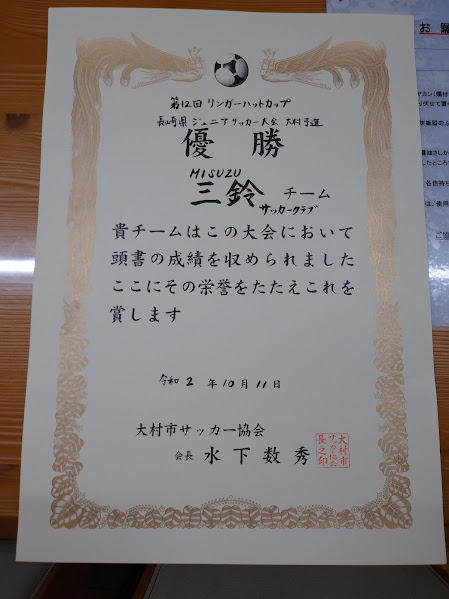 第12回 リンガーハットカップ
長崎県ジュニアサッカー大会 大村予選
優勝
MISUZU
三鈴 チーム
サッカークラブ
貴チームはこの大会において
頭書の成績を収められました
ここにその栄誉をたたえこれを
賞します
令和2年10月11日
大村市サッカー協会
会長 水下数秀
大村市
サッカー協会
長之印
お願